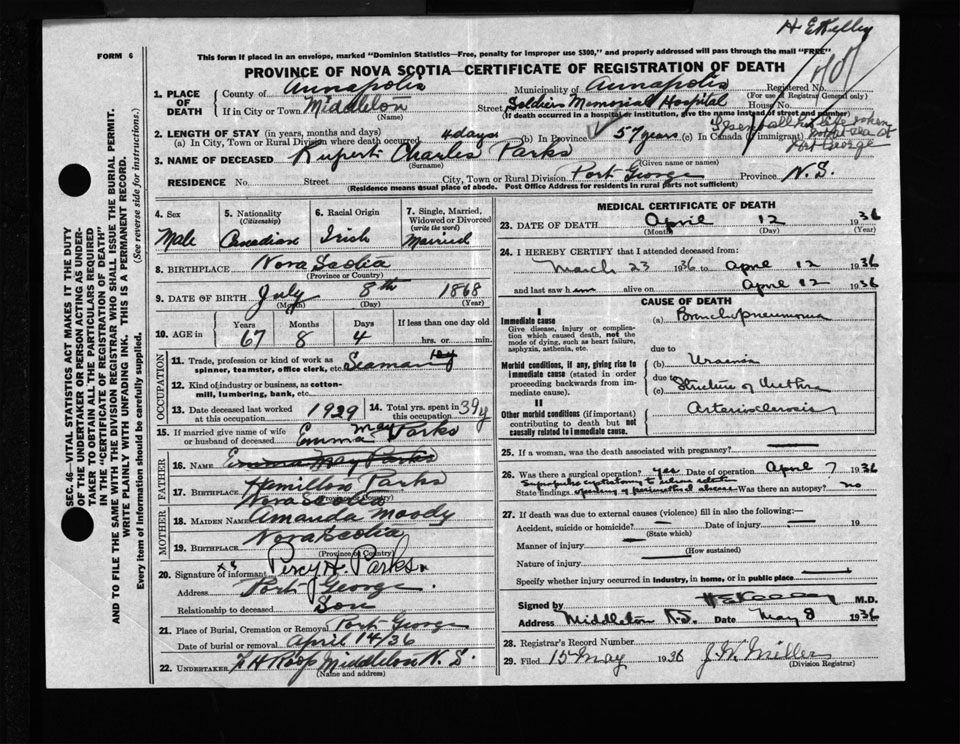 H E Kelley
FORM 6
This form if placed in an envelope, marked "Dominion Statistics—Free, penalty for improper use $300," and properly addressed will pass through the mail "FREE"
PROVINCE OF NOVA SCOTIA—CERTIFICATE OF REGISTRATION OF DEATH
1. PLACE OF DEATH
County of Annapolis Municipality of Annapolis Registered No.
(For use of Registrar General only)
If in City or Town Middleton Street Soldiers Memorial Hospital House No.
(Name) (If death occurred in a hospital or institution, give the name instead of street and number)
2. LENGTH OF STAY (in years, months and days)
(a) In City, Town or Rural Division where death occurred 4 days (b) In Province 57 years (c) In Canada (if immigrant)
Port George
3. NAME OF DECEASED Rupert Charles Parks
(Surname) (Given name or names)
RESIDENCE No. Street City, Town or Rural Division Port George Province N.S.
(Residence means usual place of abode. Post Office Address for residents in rural parts not sufficient)
4. Sex
Male
5. Nationality
(Citizenship)
Canadian
6. Racial Origin
Irish
7. Single, Married, Widowed or Divorced
(write the word)
Married
8. BIRTHPLACE Nova Scotia
(Province or Country)
9. DATE OF BIRTH July 8th 1868
(Month) (Day) (Year)
10. AGE in Years Months Days If less than one day old
67 8 4 hrs. or min.
OCCUPATION
11. Trade, profession or kind of work as spinner, teamster, office clerk, etc. Seaman
12. Kind of industry or business, as cotton-mill, lumbering, bank, etc.
13. Date deceased last worked at this occupation 1929
14. Total yrs. spent in this occupation 39 y
15. If married give name of wife or husband of deceased Emma May Parks
FATHER
16. Name Emma May Parks
Hamilton Parks
17. Birthplace Nova Scotia
(Province or Country)
MOTHER
18. Maiden Name Amanda Moody
19. Birthplace Nova Scotia
(Province or Country)
20. Signature of informant Percy H. Parks
Address Port George
Relationship to deceased Son
21. Place of Burial, Cremation or Removal Port George
Date of burial or removal April 14/36
22. UNDERTAKER Roop Middleton N.S.
(Name and address)
MEDICAL CERTIFICATE OF DEATH
23. DATE OF DEATH April 12 1936
(Month) (Day) (Year)
24. I HEREBY CERTIFY that I attended deceased from:
March 23 1936 to April 12 1936
and last saw him alive on April 12 1936
CAUSE OF DEATH
I
Immediate cause
Give disease, injury or complication which caused death, not the mode of dying, such as heart failure, asphyxia, asthenia, etc.
(a) Bronchopneumonia
due to
Morbid conditions, if any, giving rise to immediate cause (stated in order proceeding backwards from immediate cause).
(b) Uraemia
due to
(c) Stricture of Urethra
II
Other morbid conditions (if important) contributing to death but not causally related to immediate cause.
Arteriosclerosis
25. If a woman, was the death associated with pregnancy?
26. Was there a surgical operation? yes Date of operation April 7 1936
State findings Was there an autopsy? no
27. If death was due to external causes (violence) fill in also the following:—
Accident, suicide or homicide? Date of injury 19
(State which)
Manner of injury
(How sustained)
Nature of injury
Specify whether injury occurred in industry, in home, or in public place
Signed by H E Kelley M.D.
Address Middleton N.S. Date May 8 1936
28. Registrar's Record Number
29. Filed 15 May 1936 J. W. Miller
(Division Registrar)
SEC. 46—VITAL STATISTICS ACT MAKES IT THE DUTY OF THE UNDERTAKER OR PERSON ACTING AS UNDERTAKER TO OBTAIN ALL THE PARTICULARS REQUIRED IN THE "CERTIFICATE OF REGISTRATION OF DEATH" AND TO FILE THE SAME WITH THE DIVISION REGISTRAR WHO SHALL ISSUE THE BURIAL PERMIT.
WRITE PLAINLY WITH UNFADING INK. THIS IS A PERMANENT RECORD.
Every item of information should be carefully supplied. (See reverse side for instructions.)